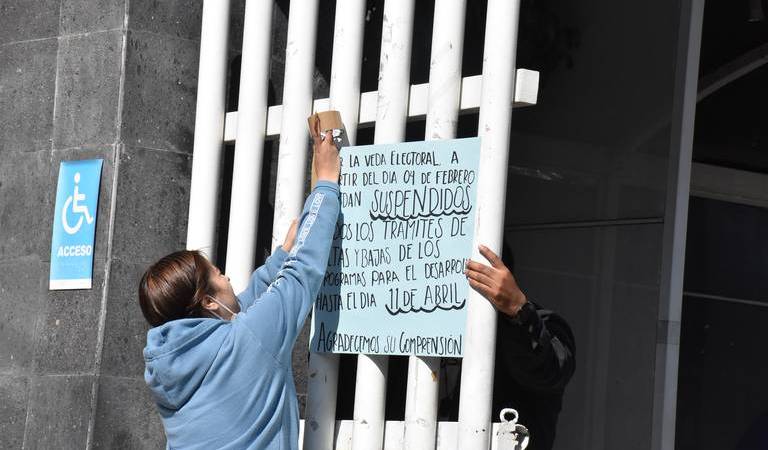 ACCESO
LA VEDA ELECTORAL, A
DEL DIA 04 DE FEBRERO
SUSPENDIDOS
LOS TRÁMITES DE
Y BAJAS DE LOS
PARA EL DESARROL
HASTA EL DIA 11 DE ABRIL
AGRADECEMOS SU COMPRENSIÓN